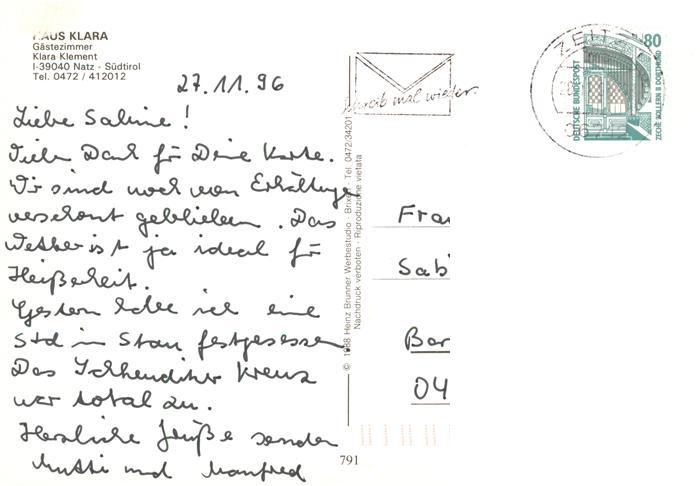 HAUS KLARA
Gästezimmer
Klara Klement
I-39040 Natz - Südtirol
Tel. 0472 / 412012
27.11.96
Liebe Sabine!
Vielen Dank für Deine Karte.
Wir sind noch von Erkältungen
verschont geblieben. Das
Wetter ist ja ideal für
Heiserkeit.
Gestern habe ich eine
Std im Stau festgesessen
Das Schkeuditzer Kreuz
war total zu.
Herzliche Grüße senden
Mutti und Manfred
© 1988 Heinz Brunner Werbestudio · Brixen · Tel. 0472/34201
Nachdruck verboten · Riproduzione vietata
791
Schreib mal wieder
ZEIT
80
DEUTSCHE BUNDESPOST
ZECHE ZOLLERN II DORTMUND
Frau
Sab
Bor
04